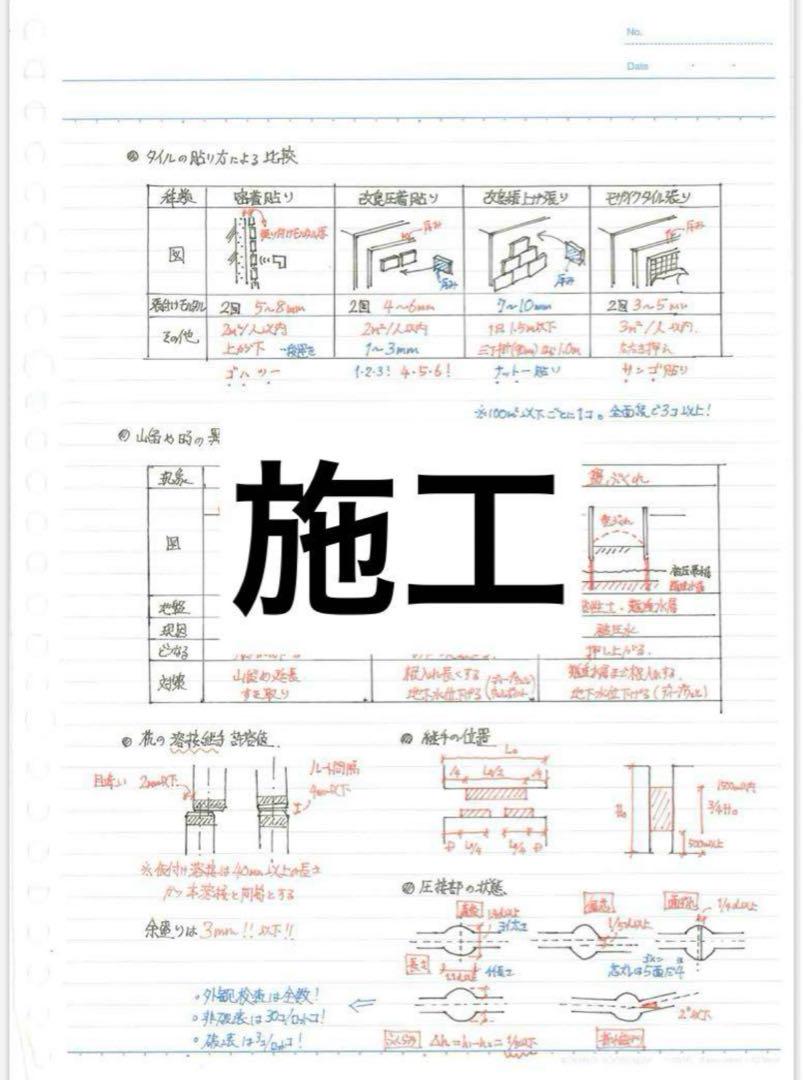 No.
Date
タイルの貼り方による比較
種類 密着貼り 改良圧着貼り 改良積上げ張り モザイクタイル張り
図 張り付けモルタル厚 厚み 厚み 厚み 厚み
張付けモルタル 2回 5~8mm 2回 4~6mm 7~10mm 2回 3~5mm
その他 2m²/人以内 2m²/人以内 1日1.5m以下 3m²/人以内.
上から下 一段置き 1~3mm 1.0m たたき押え
ゴハッツー 1・2・3! 4・5・6! ナットー貼り サンゴ貼り
※100m²以下ごとに1コ。全面積で3コ以上!
山留め時の
現象 盤ぶくれ
図 盤ぶくれ
施工
被圧帯水層
難透水層
地盤 難透水層
原因 被圧水
どうなる 押し上がる.
対策 山留め延長 根入れ長くする
すき取り 地下水位下げる 地下水位下げる
杭の溶接継手許容値
継手の位置
L₀
目違い 2mm以下
ルート間隔
4mm以下
L₀/4 L₀/4
H₀
1500mm以内
3/4H₀
500mm以上
※仮付け溶接は40mm以上の長さ
かつ本溶接と同等とする
余盛りは3mm!!以下!!
圧接部の状態
直径 1.4d以上
偏心 1/5d以下
面ずれ 1/4d以下
長さ
1.1d以上
外観検査は全数!
非破壊は30コ/ロットコ!
破壊は3コ/ロットコ!
2°以下
ふくらみ Δh=h₁-h₂=1/5以下
折れ曲がり